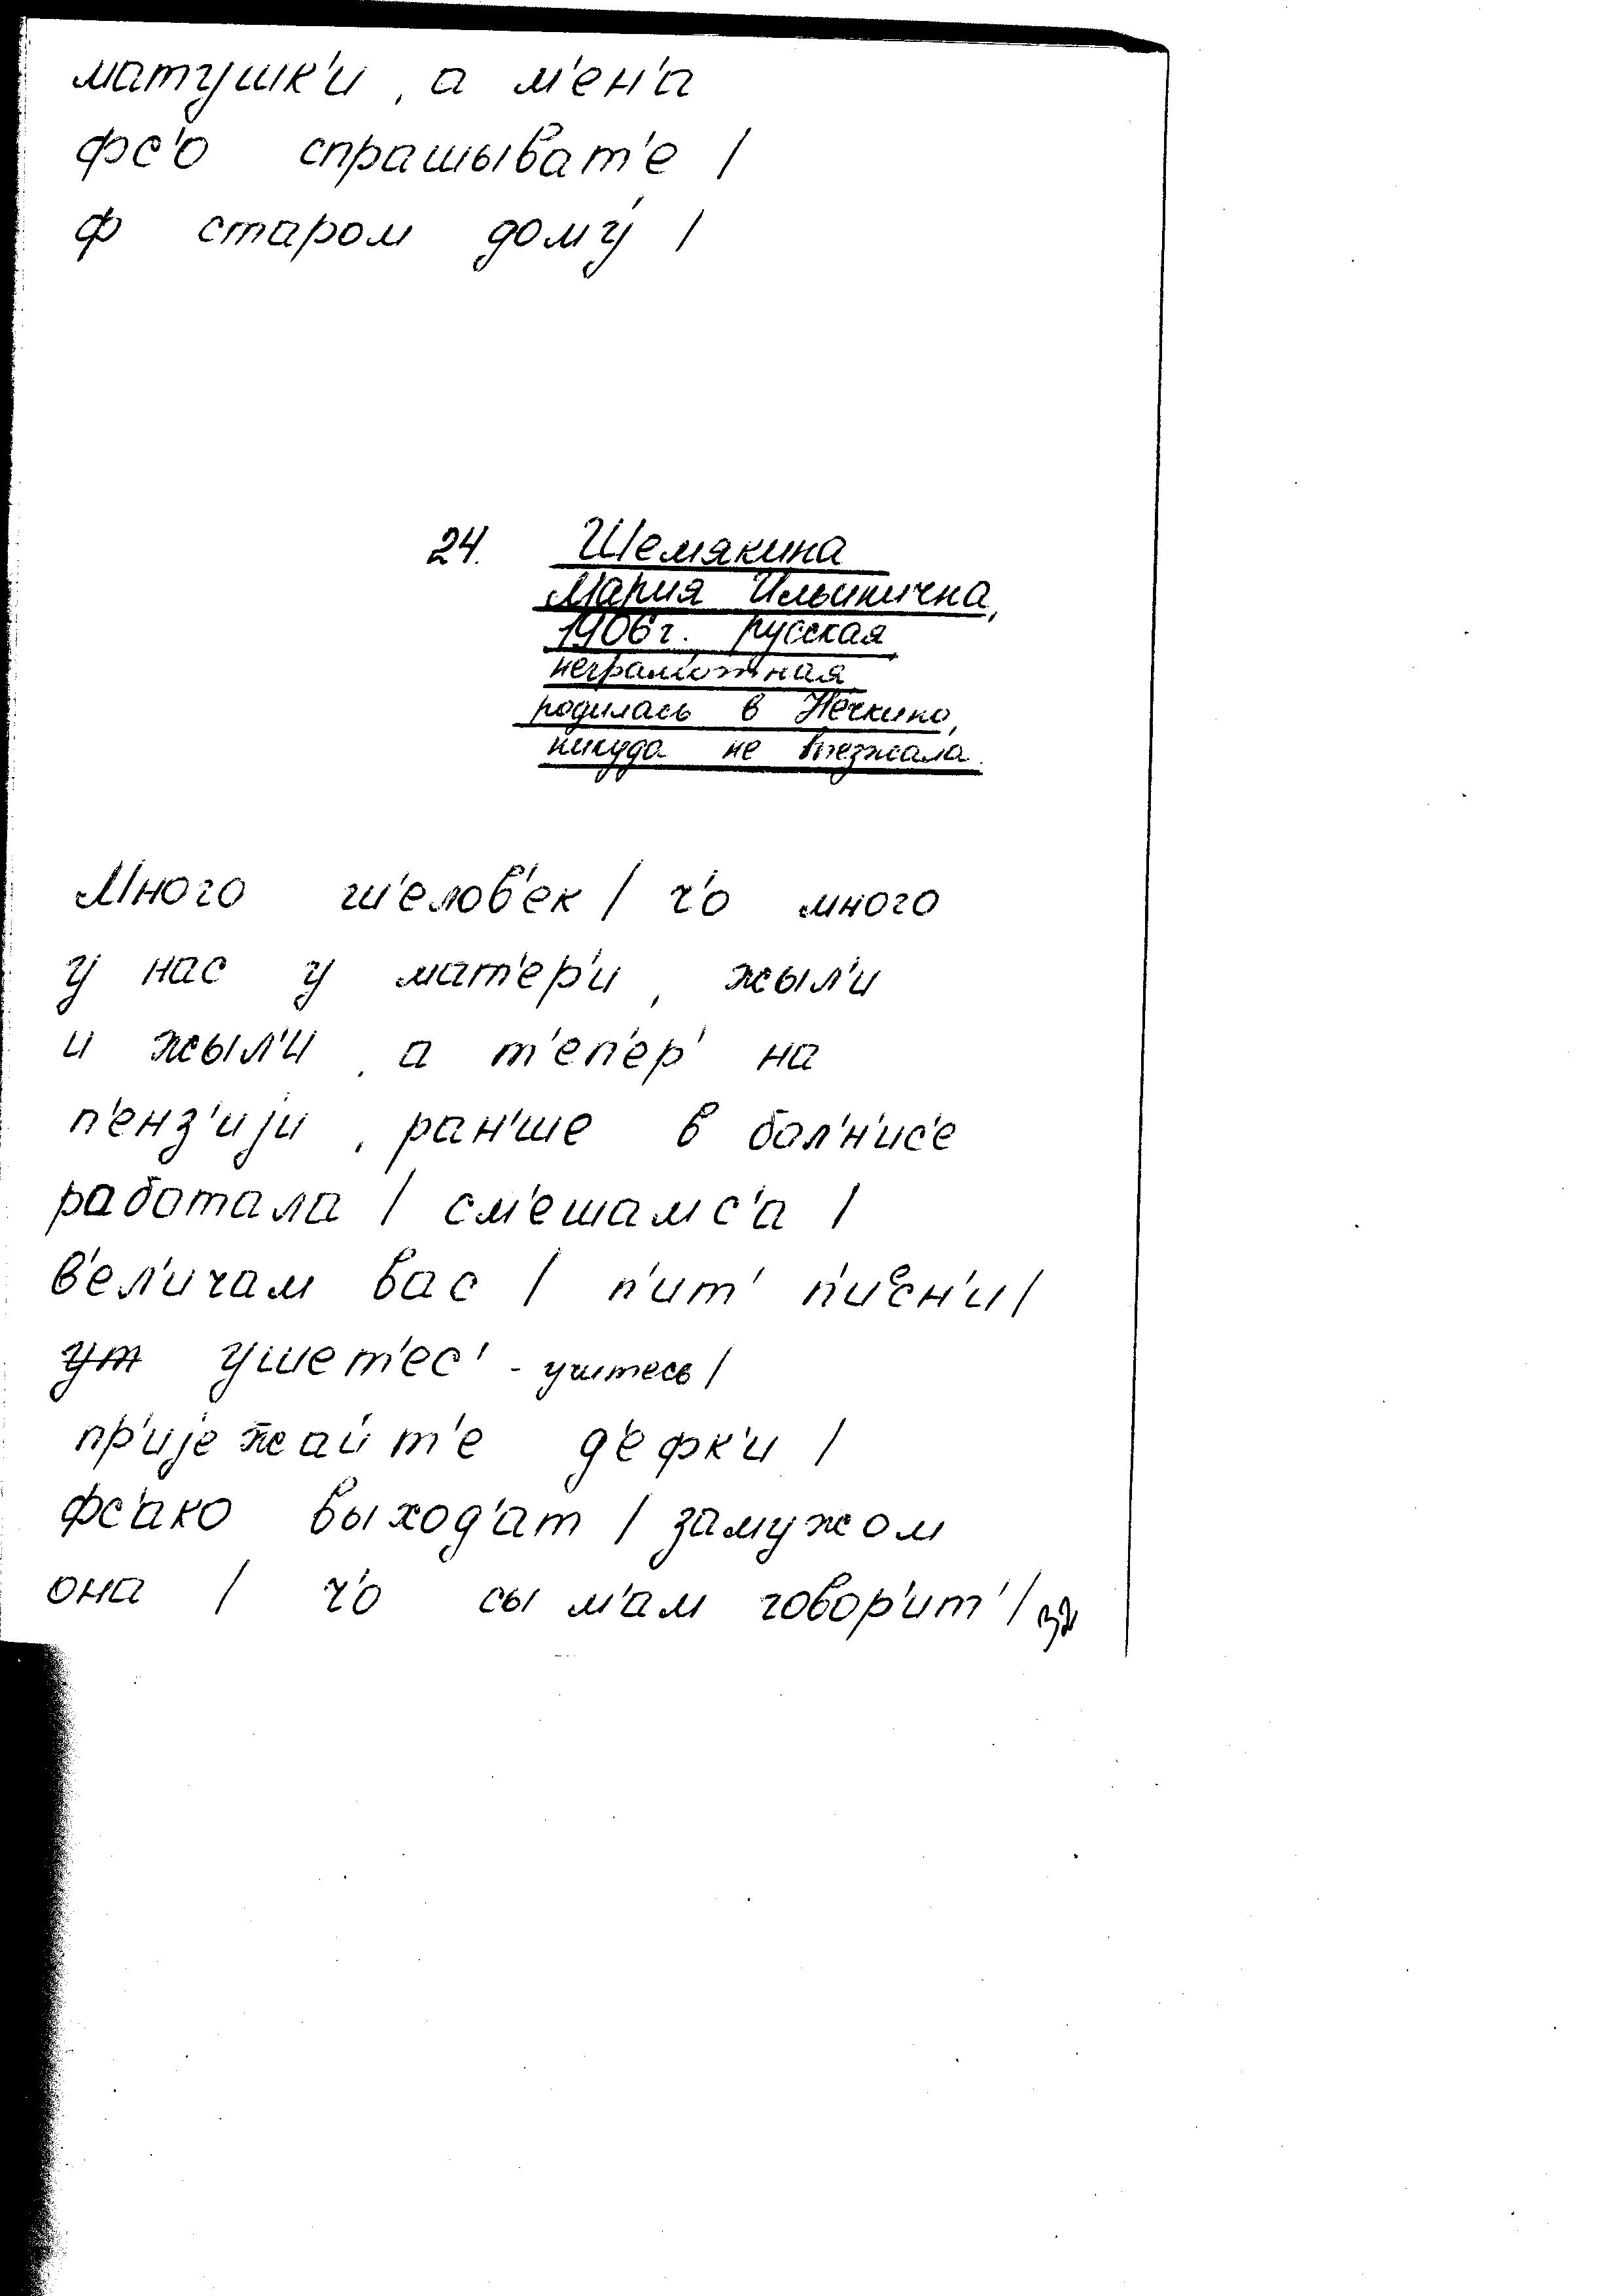 матушк'и, а м'ен'а
фс'о спрашыват'е /
ф старом дому́ /
24. Шемякина
Мария Ильинична,
1906 г. русская
неграмотная
родилась в Нечкино,
никуда не выезжала.
Много ш'елов'ек / ч'о много
у нас у мат'ер'и, жыл'и
и жыл'и, а т'еп'ер' на
п'енз'иjи, ран'ше в бол'н'ис'е
работала / см'ешамс'а /
в'ел'ичам вас / п'ит' п'иᵉсн'и /
ут ушет'ес' - учитесь /
пр'иjежайт'е д'ефк'и /
фс'ако выход'ат / замужом
она / ч'о сы м'ам говор'ит' /